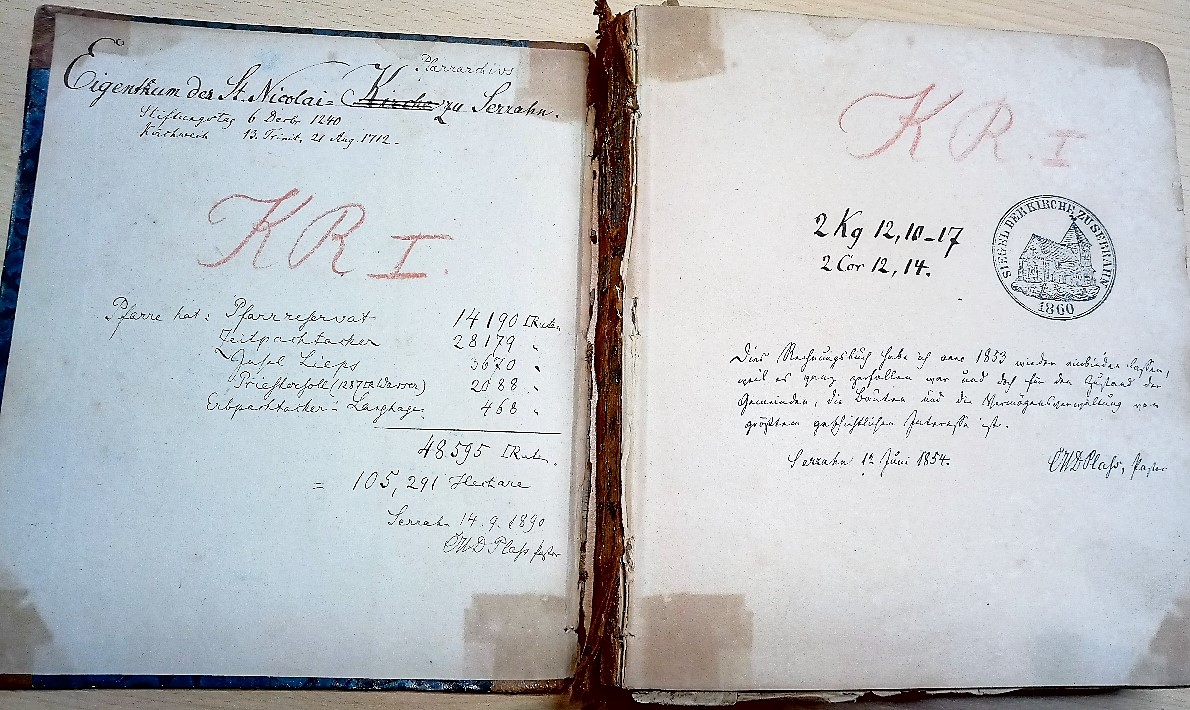 Pfarrarchivs
Eigenthum der St. Nicolai- Kirche zu Serrahn.
Stiftungstag 6 Decbr 1240
Kirchweih 13. Trinit. 21 Aug. 1712.
KR I.
Pfarre hat: Pfarrreservat 14190 □Ruten
Zeitpachtacker 28179 "
Insel Lieps 3670 "
Priestersoll (1287 Wasser) 2088 "
Erbpachtacker Langhagen 468 "
48595 □Ruten.
= 105,291 Hectare
Serrahn 14. 9. 1890
CWD Plass Pastor
KR. I
2 Kg 12, 10-17
2 Cor 12, 14.
SIEGEL DER KIRCHE ZU SERRAHN
1860
Dies Rechnungsbuch habe ich anno 1853 wieder einbinden lassen,
weil es ganz zerfallen war und doch für den Zustand der
Gemeinden, die Bauten und die Vermögensverwaltung von
größtem geschichtlichen Interesse ist.
Serrahn 12 Juni 1854. CWD Plass, Pastor